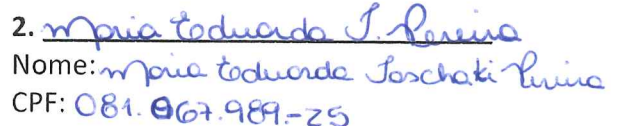 2. Maria Eduarda J. Pereira
Nome: Maria Eduarda Joschaki Pereira
CPF: 081.067.989-25